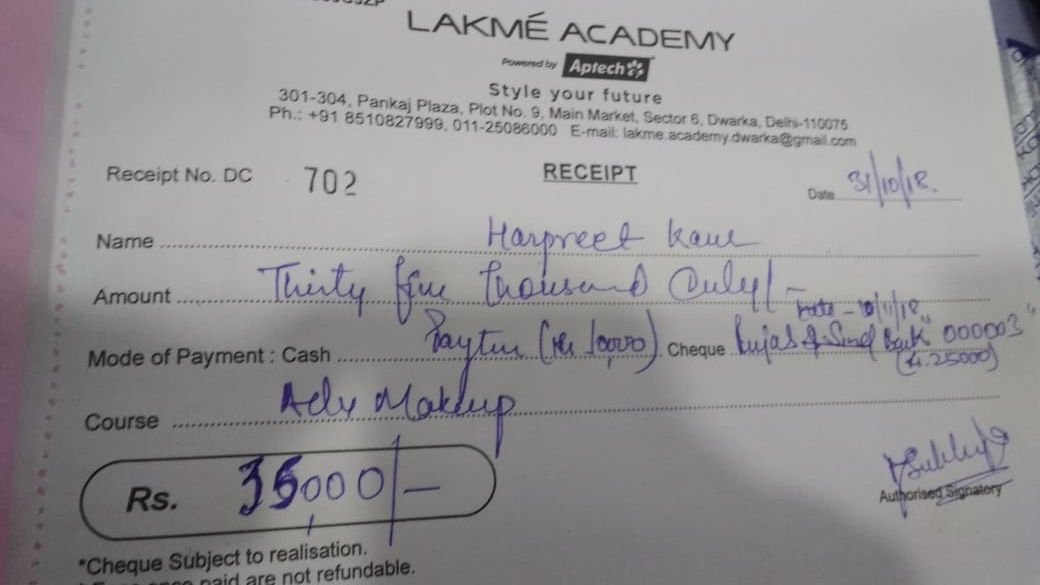 LAKMÉ ACADEMY
Powered by Aptech
Style your future
301-304, Pankaj Plaza, Plot No. 9, Main Market, Sector 6, Dwarka, Delhi-110075
Ph.: +91 8510827999, 011-25086000 E-mail: lakme.academy.dwarka@gmail.com
Receipt No. DC 702 RECEIPT Date 31/10/18.
Name Harpreet Kaur
Amount Thirty five thousand Only/-
10/11/18
Mode of Payment : Cash Paytm (Rs 10,000) Cheque Bank "000003"
25000)
Course Adv Makeup
Rs. 35,000/-
Authorised Signatory
*Cheque Subject to realisation.
paid are not refundable.